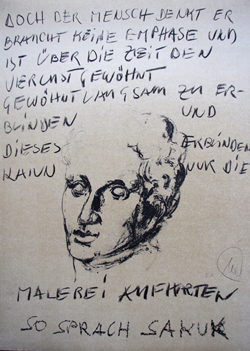 DOCH DER MENSCH DENKT ER
BRAUCHT KEINE EMPHASE UND
IST ÜBER DIE ZEIT DEN
VERLUST GEWÖHNT
GEWÖHNT LANGSAM ZU ER-
BLINDEN UND
DIESES ERBLINDEN
KANN NUR DIE
MALEREI
SO SPRACH